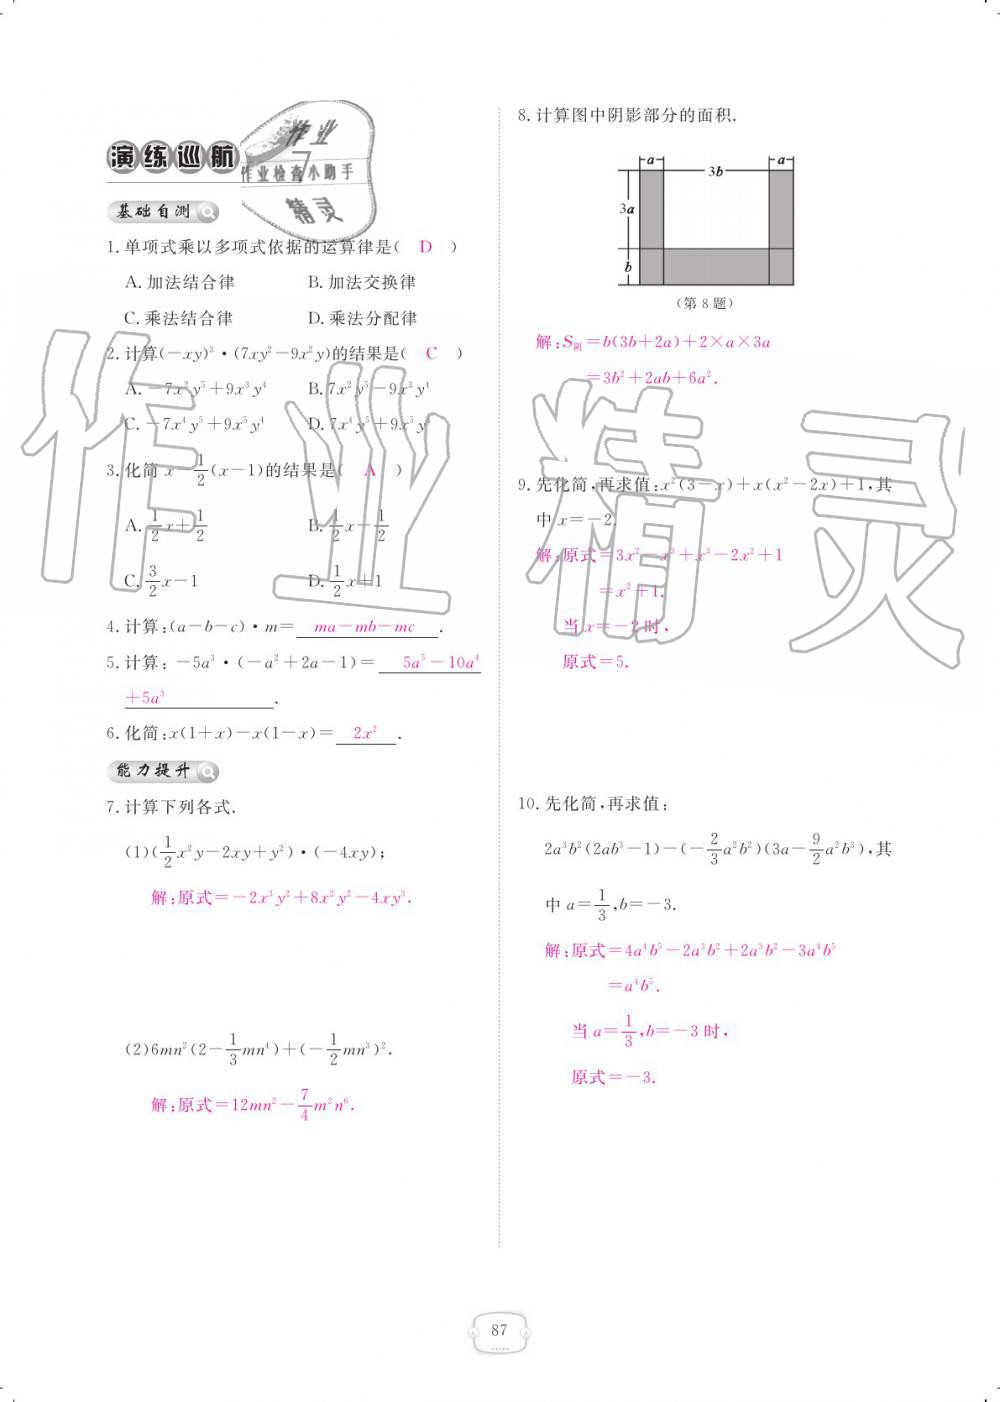 演练巡航
作业
作业检查小助手
精灵
基础自测
1.单项式乘以多项式依据的运算律是( D )
A.加法结合律 B.加法交换律
C.乘法结合律 D.乘法分配律
2.计算(-xy)³·(7xy²-9x²y)的结果是( C )
A.-7x²y⁵+9x³y⁴ B.7x²y⁵-9x³y⁴
C.-7x⁴y⁵+9x⁵y⁴ D.7x⁴y⁵+9x⁵y⁴
3.化简 x-1/2(x-1)的结果是( A )
A.1/2x+1/2 B.1/2x-1/2
C.3/2x-1 D.1/2x+1
4.计算:(a-b-c)·m= ma-mb-mc .
5.计算:-5a³·(-a²+2a-1)= 5a⁵-10a⁴
+5a³ .
6.化简:x(1+x)-x(1-x)= 2x² .
能力提升
7.计算下列各式.
(1)(1/2x²y-2xy+y²)·(-4xy);
解:原式=-2x³y²+8x²y²-4xy³.
(2)6mn²(2-1/3mn⁴)+(-1/2mn³)².
解:原式=12mn²-7/4m²n⁶.
8.计算图中阴影部分的面积.
a 3b a
3a
b
(第8题)
解:S阴=b(3b+2a)+2×a×3a
=3b²+2ab+6a².
9.先化简,再求值:x²(3-x)+x(x²-2x)+1,其
中 x=-2.
解:原式=3x²-x³+x³-2x²+1
=x²+1.
当 x=-2时,
原式=5.
10.先化简,再求值:
2a³b²(2ab³-1)-(-2/3a²b²)(3a-9/2a²b³),其
中 a=1/3,b=-3.
解:原式=4a⁴b⁵-2a³b²+2a³b²-3a⁴b⁵
=a⁴b⁵.
当 a=1/3,b=-3时,
原式=-3.
作业精灵
87